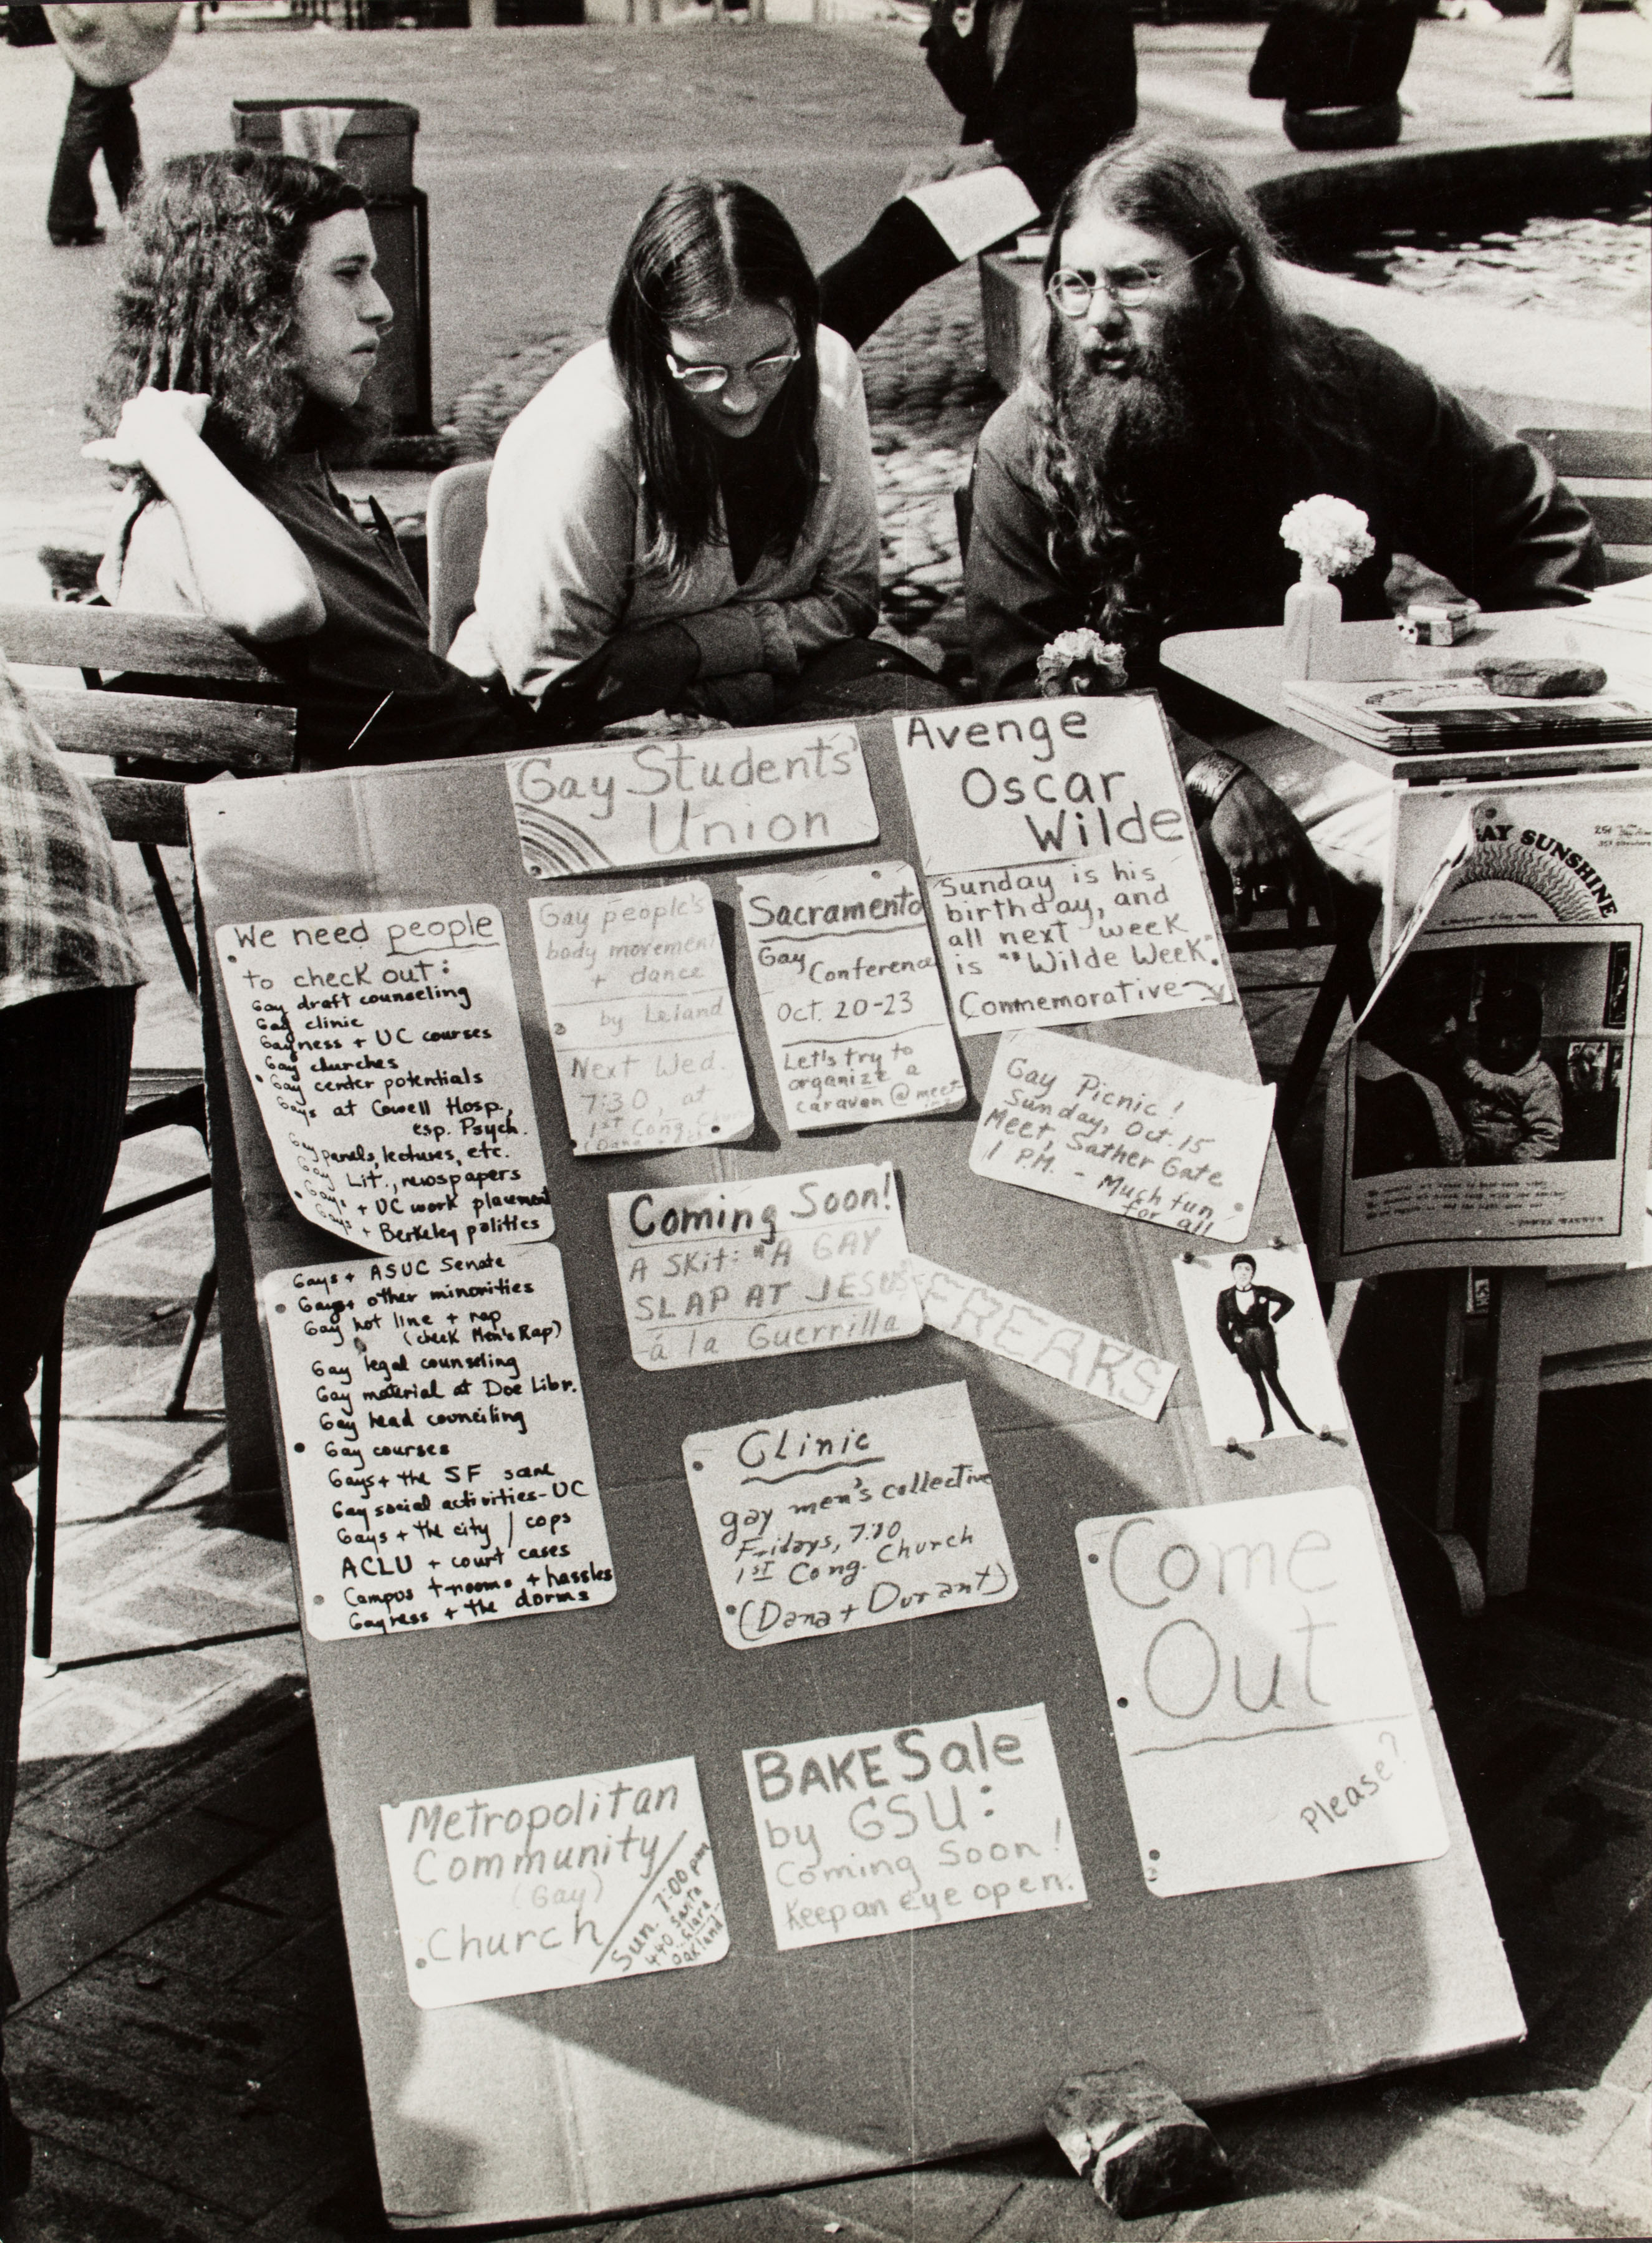 Gay Students'
Union
Avenge
Oscar
Wilde
Sunday is his
birthday, and
all next week
is "Wilde Week".
Commemorative
We need people
to check out:
Gay draft counseling
Gay clinic
Gayness + UC courses
Gay churches
Gay center potentials
Gays at Cowell Hosp.,
esp. Psych.
Gay panels, lectures, etc.
Gay Lit., newspapers
Gays + UC work placement
Gays + Berkeley politics
Gays + ASUC Senate
Gays + other minorities
Gay hot line + rap
(check Men's Rap)
Gay legal counseling
Gay material at Doe Libr.
Gay head counciling
Gay courses
Gays + the SF scene
Gay social activities - UC
Gays + the city / cops
ACLU + court cases
Campus t-rooms + hassles
Gayness + the dorms
Gay people's
body movement
+ dance
by Leland
Next Wed.
7:30, at
1st Cong. Church
Sacramento
Gay
Conference
Oct. 20-23
Let's try to
organize a
caravan @ meet
Gay Picnic!
Sunday, Oct. 15
Meet, Sather Gate
1 P.M. - Much fun
for all
Coming Soon!
A Skit: "A GAY
SLAP AT JESUS
FREAKS
á la Guerrilla
Clinic
gay men's collective
Fridays, 7:30
1st Cong. Church
(Dana + Durant)
Come
Out
Please?
Metropolitan
Community
(Gay)
Church
Sun. 7:00 pm
440 Santa
Clara
Oakland
BAKE Sale
by GSU:
Coming Soon!
Keep an eye open.
GAY SUNSHINE
25¢